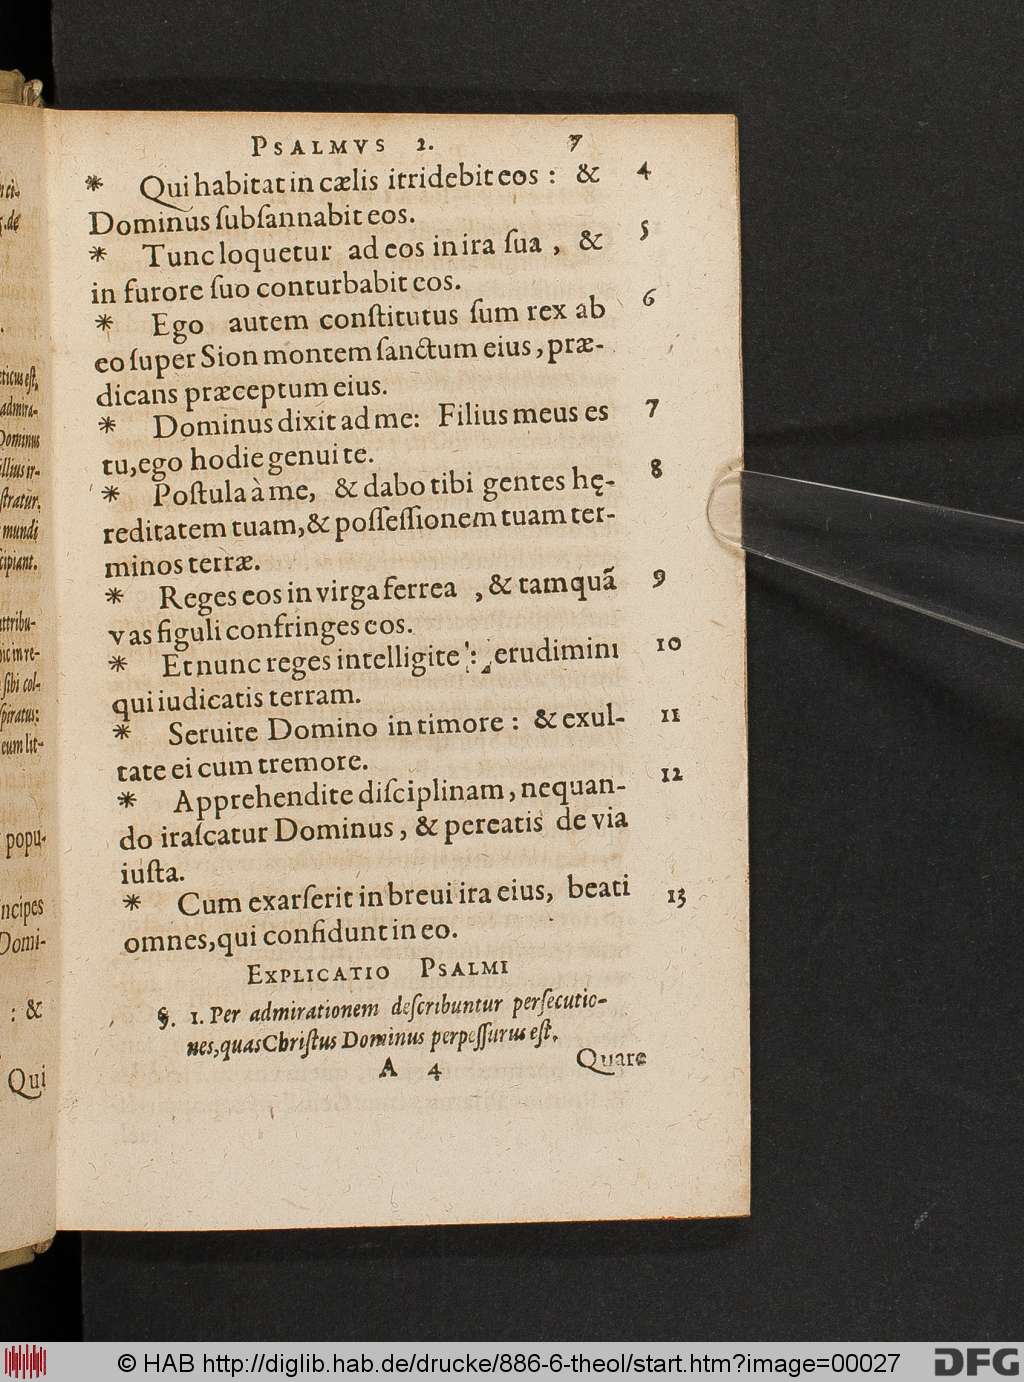 PSALMVS 2. 7
* Qui habitat in cælis irridebit eos : & 4
Dominus ſubſannabit eos.
* Tunc loquetur ad eos in ira ſua , & 5
in furore ſuo conturbabit eos.
* Ego autem conſtitutus ſum rex ab 6
eo ſuper Sion montem ſanctum eius, præ-
dicans præceptum eius.
* Dominus dixit ad me: Filius meus es 7
tu, ego hodie genui te.
* Poſtula à me, & dabo tibi gentes hę- 8
reditatem tuam, & poſſeſſionem tuam ter-
minos terræ.
* Reges eos in virga ferrea , & tamquã 9
vas figuli confringes eos.
* Et nunc reges intelligite : erudimini 10
qui iudicatis terram.
* Seruite Domino in timore : & exul- 11
tate ei cum tremore.
* Apprehendite diſciplinam, nequan- 12
do iraſcatur Dominus, & pereatis de via
iuſta.
* Cum exarſerit in breui ira eius, beati 13
omnes, qui confidunt in eo.
EXPLICATIO PSALMI
§. 1. Per admirationem deſcribuntur perſecutio-
nes, quas Chriſtus Dominus perpeſſurus eſt.
A 4 Quare
ticus eſt,
admira-
Dominus
ſtratur.
mundi
cipiant.
attribu-
ſibi col-
ſpiratus:
eum lit-
popu-
incipes
Domi-
: &
Qui
© HAB http://diglib.hab.de/drucke/886-6-theol/start.htm?image=00027
DFG